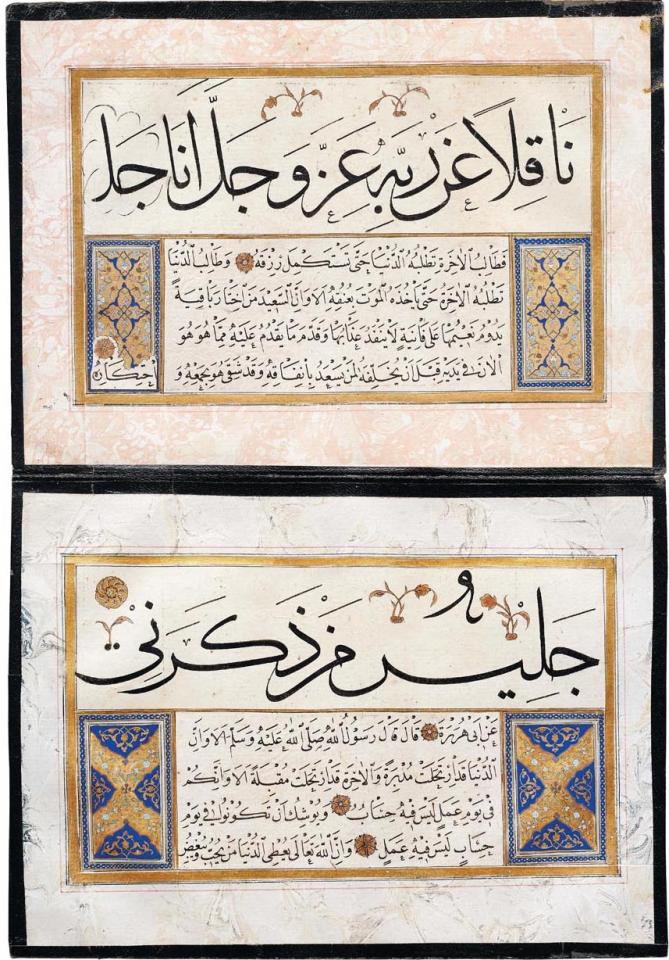 نَاقِلاً عَنْ رَبِّهِ عَزَّ وَجَلَّ اَنَا جَل
فَطَالِبُ الْاٰخِرَةِ تَطْلُبُهُ الدُّنْيَا حَتّٰى تَسْتَكْمِلَ رِزْقَهُ وَطَالِبُ الدُّنْيَا
تَطْلُبُهُ الْاٰخِرَةُ حَتّٰى يَأْخُذَهُ الْمَوْتُ بِعُنُقِهِ اَلَا وَاِنَّ السَّعِيدَ مَنِ اخْتَارَ بَاقِيَةً
يَدُومُ نَعِيمُهَا عَلٰى فَانِيَةٍ لَا يَنْفَدُ عَذَابُهَا وَقَدَّمَ مَا يَقْدَمُ عَلَيْهِ مِمَّا هُوَ هُوَ
الْاٰنَ فِي يَدَيْهِ قَبْلَ اَنْ يُخَلِّفَهُ لِمَنْ يَسْعَدُ بِاِنْفَاقِهِ وَقَدْ شَقِيَ هُوَ بِجَمْعِهِ وَ
اِحْتِكَارِهِ
جَلِيسُ مَنْ ذَكَرَنِي
عَنْ اَبِى هُرَيْرَةَ قَالَ قَالَ رَسُولُ اللّٰهِ صَلَّى اللّٰهُ عَلَيْهِ وَسَلَّمَ اَلَا وَاِنَّ
الدُّنْيَا قَدِ ارْتَحَلَتْ مُدْبِرَةً وَالْاٰخِرَةَ قَدِ ارْتَحَلَتْ مُقْبِلَةً اَلَا وَاِنَّكُمْ
فِى يَوْمِ عَمَلٍ لَيْسَ فِيهِ حِسَابٌ وَيُوشَكُ اَنْ تَكُونُوا فِى يَوْمِ
حِسَابٍ لَيْسَ فِيهِ عَمَلٌ وَاِنَّ اللّٰهَ تَعَالٰى يُعْطِى الدُّنْيَا مَنْ يُحِبُّ وَيُبْغِضُ